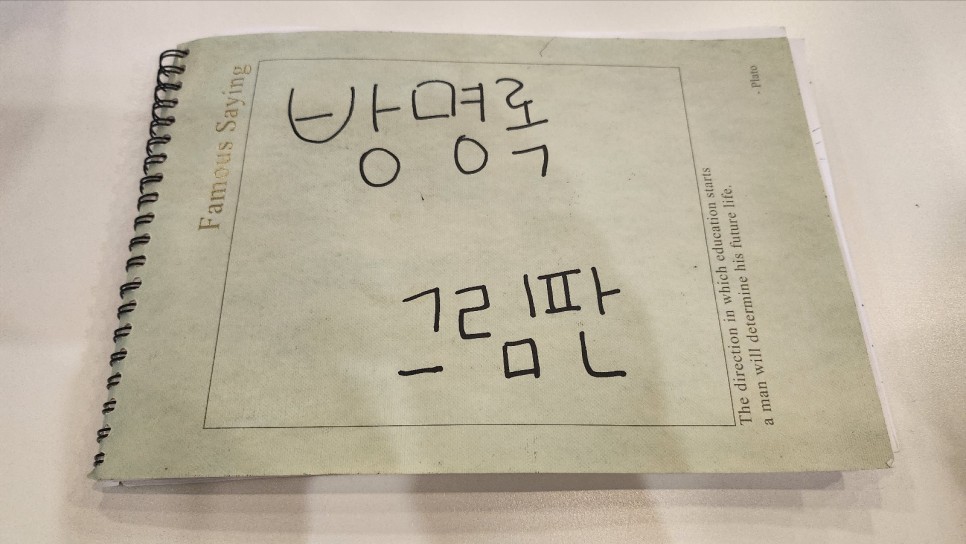 방명록
그림판
Famous Saying
The direction in which education starts
a man will determine his future life.
- Plato